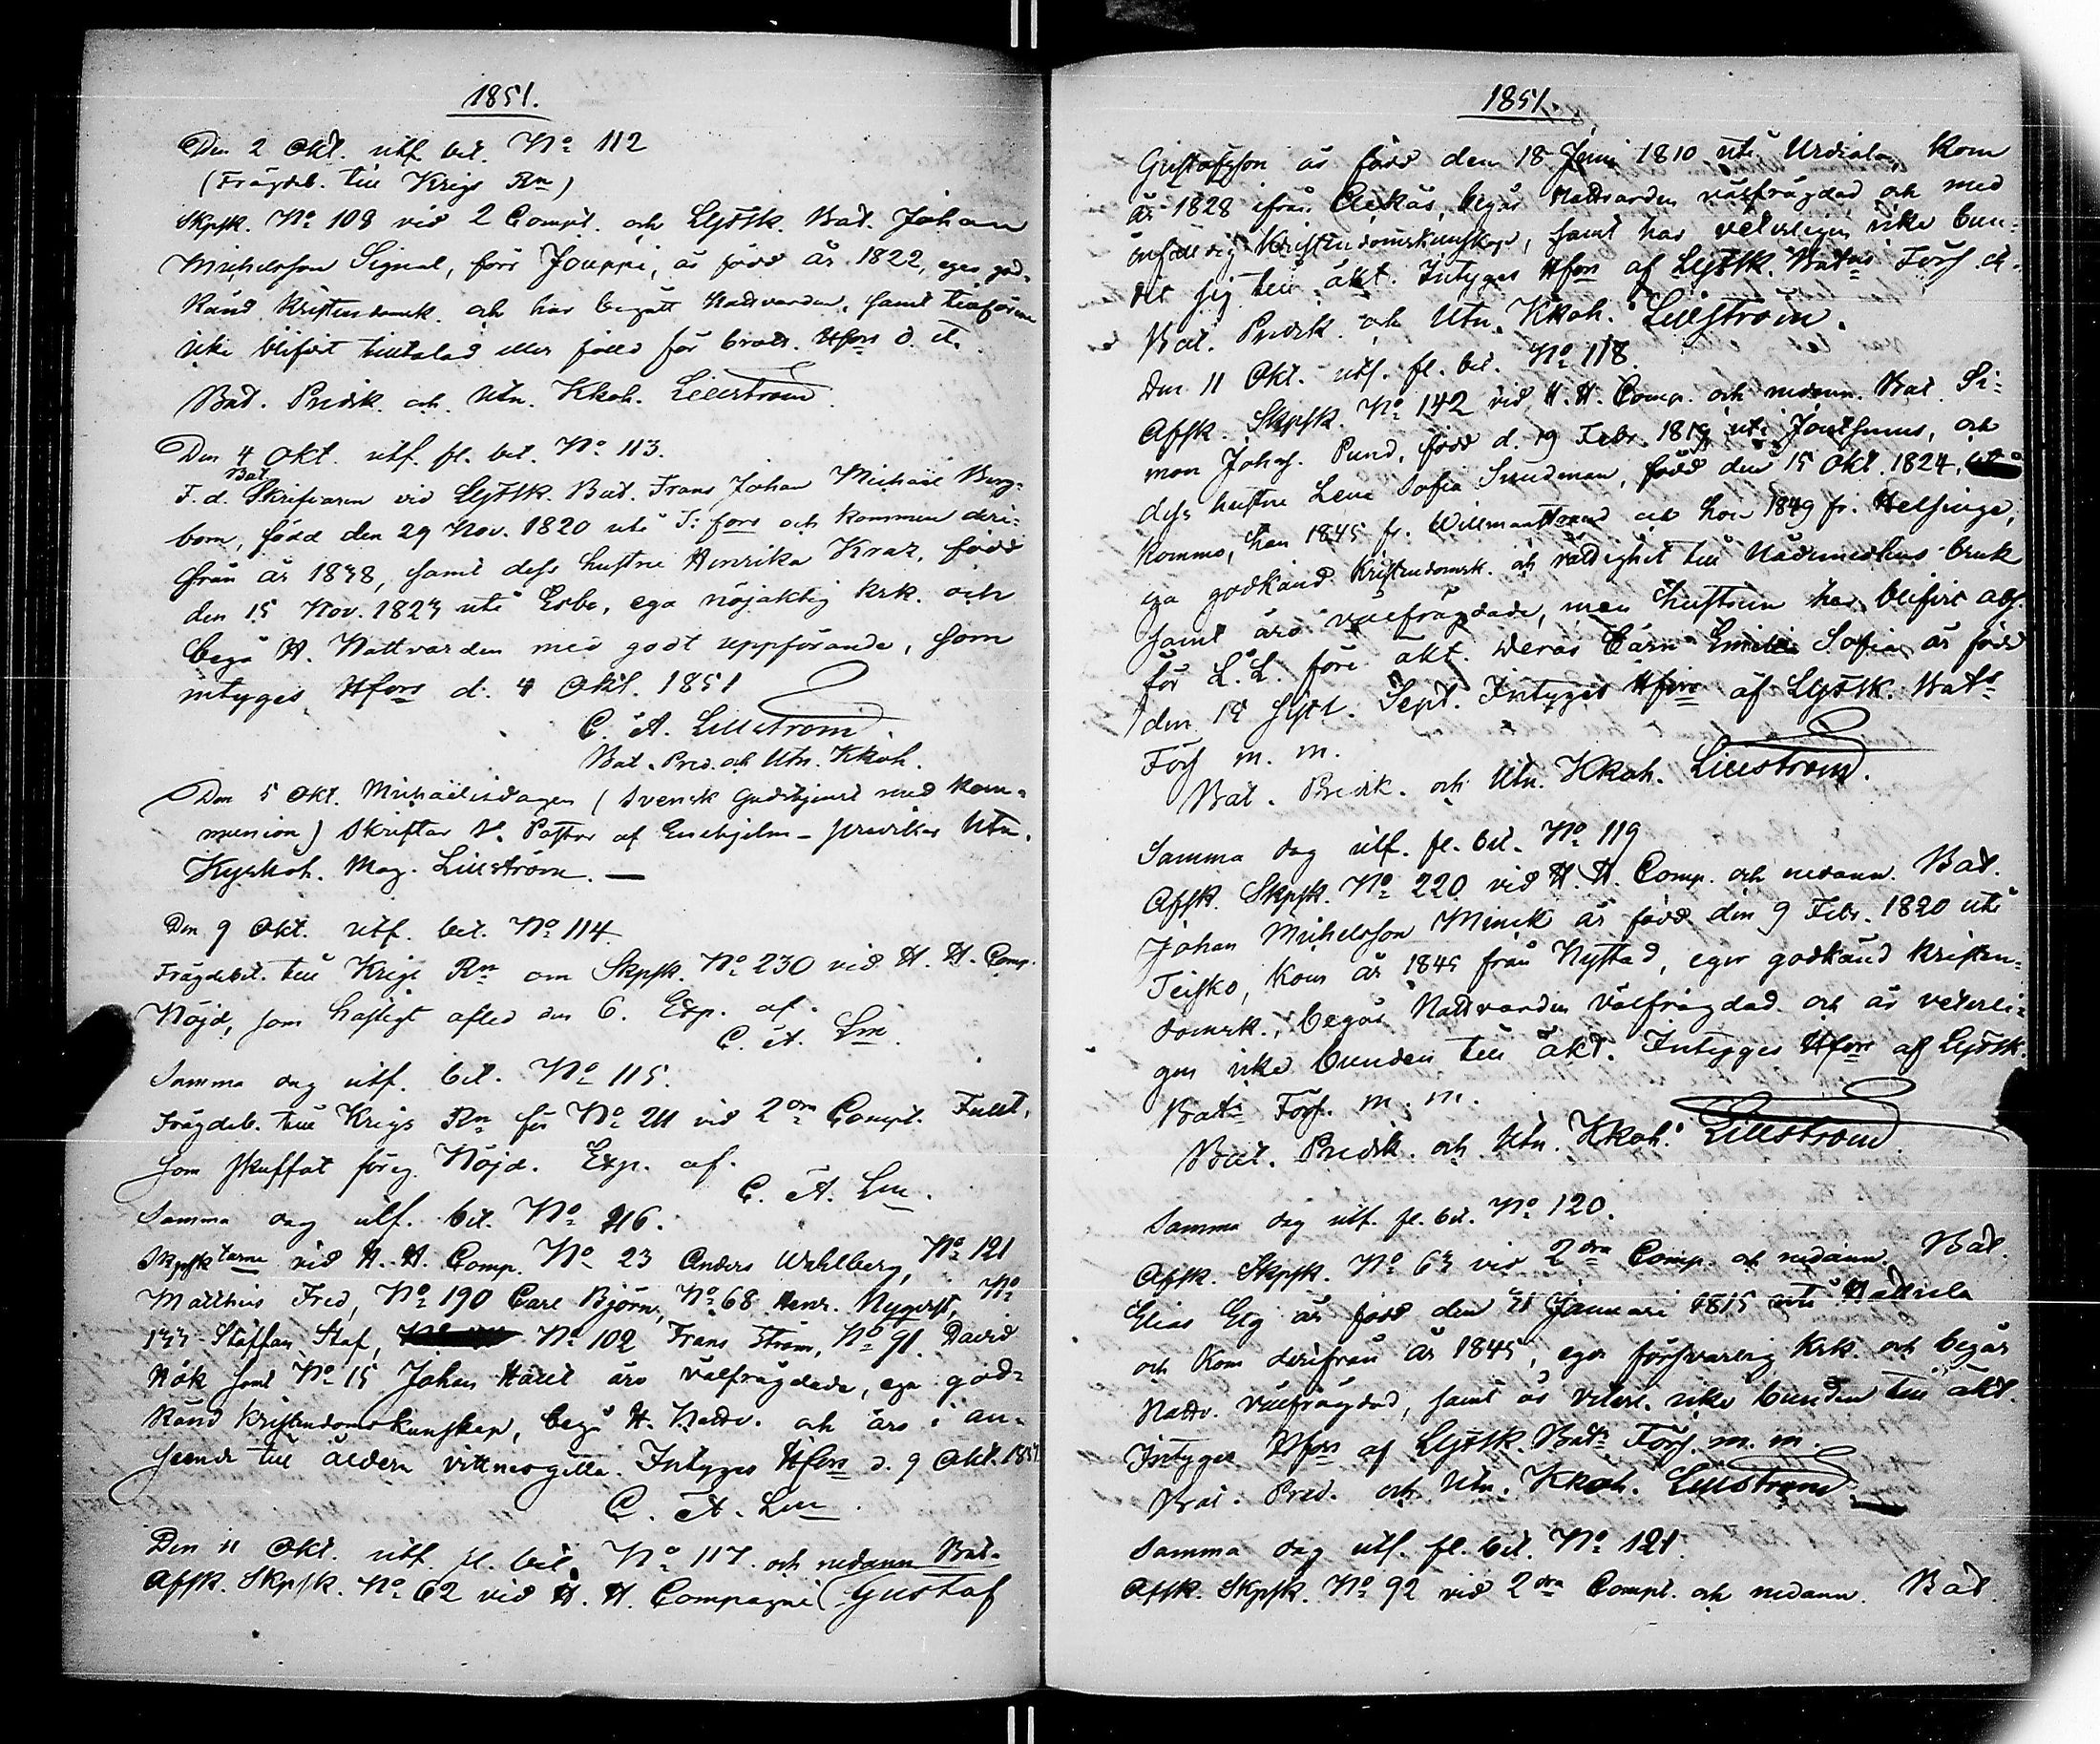 1851.
Den 2 Okt. utf. bet. No 112
(Frågdeb. till Krigs Rn)
Skpsk. No 108 vid 2 Compt. och LgFSk. Bat. Johan
Michelsson Signal, förr Jouppi, är född år 1822, eger god-
känd Kristendomsk. och har begått Nattvarden, samt tillförene
icke blifvit tilltalad eller fälld för brott. Hfors d. A.
Bat. Predik. och Utn. Kkoh. Lillström.
Den 4 Okt. utf. fl. bet. No 113.
Bat.
F. d. Skrifvaren vid LgFSk. Bat. Frans Johan Michaël Berg-
bom, född den 29 Nov. 1820 uti T:fors och kommen deri-
från år 1838, samt dess hustru Henrika Kraz, född
den 15 Nov. 1823 uti Esbo, ega nöjaktig krk. och
begå H. Nattvarden med godt uppförande, som
intygas Hfors d. 4 Okt. 1851
C. A. Lillström.
Bat. Pred. och Utn. Kkoh.
Den 5 Okt. Michaëlisdagen (Svensk Gudstjenst med kom-
munion) Skriftar V. Pastor af Enehjelm - predikar Utn.
Kyrkoh. Mag. Lillström. —
Den 9 Okt. utf. bet. No 114.
Frägdebet. till Krigs Rn om Skpsk. No 230 vid H. H. Comp.
Nöjd, som hastigt afled den 6. Exp. af.
C. A. Lm.
Samma dag utf. bet. No 115.
Frägdeb. till Krigs Rn för No 211 vid 2dra Compt. Fullt,
som skuffat föreg. Nöjd. Exp. af.
C. A. Lm.
Samma dag utf. bet. No 116.
Skpsktarne vid H. H. Comp. No 23 Anders Wahlberg, No 121
Matthias Fred, No 190 Carl Björn, No 68 Henr. Nyqvist, No
133 Staffan Staf, No 102 Frans Ström, No 91 David
Hök samt No 15 Johan Häll äro välfrägdade, ega god-
känd Kristendomskunskap, begå H. Nattv. och äro i an-
seende till åldern vittnesgilla. Intygas Hfors d. 9 Okt. 1851.
C. A. Lm
Den 11 Okt. utf. fl. bet. No 117. och nedann Bat.
Afsk. Skpsk. No 62 vid H. H. Compagni Gustaf
1851.
Gustafsson är född den 18 Juni 1810 uti Urdiala, kom
år 1828 ifrån Ackas, begår Nattvarden välfrägdad och med
Kristendomskunskap, samt har veterligen icke bun-
det sig till äkt. Intygas Hfors af LgFSk. Batns Förs. d.
Bat. Predik. och Utn. Kkoh. Lillström.
Den 11 Okt. utf. fl. bet. No 118.
Afsk. Skpsk. No 142 vid H. H. Comp. och nedann. Bat. Si-
mon Johns. Pund, född d. 19 Febr. 1819 uti Joutsenus, och
dess hustru Lena Sofia Sundman, född den 15 Okt. 1824,
komne, han 1845 fr. Willmanstrand och hon 1849 fr. Helsinge,
ega godkänd Kristendomsk. och rättighet till Nådemedlens bruk
samt äro välfrägdade, men hustrun har blifvit abs.
för L. L. före äkt. Deras barn Emilia Sofia är född
den 15 sistl. Sept. Intygas Hfors af LgFSk. Bats
Förs m. m.
Bat. Predik. och Utn. Kkoh. Lillström.
Samma dag utf. fl. bet. No 119
Afsk. Skpsk. No 220 vid H. H. Comp. och nedann. Bat.
Johan Michelsson Minck är född den 9 Febr. 1820 uti
Teisko, kom år 1845 från Nystad, eger godkänd kristen-
domsk., begår Nattvarden välfrägdad och är veterli-
gen icke bunden till äkt. Intygas Hfors af LgFSk.
Bats Förs. m. m.
Bat. Predik. och Utn. Kkoh. Lillström.
Samma dag utf. fl. bet. No 120.
Afsk. Skpsk. No 63 vid 2dra Comp. och nedann. Bat.
Elias Elg är född den 31 Januari 1815 uti Hattula
och kom derifrån år 1845, eger försvarlig krk. och begår
Nattv. välfrägdad, samt är veterl. icke bunden till äkt.
Intygas Hfors af LgFSk. Bats Förs. m. m.
Bat. Pred. och Utn. Kkoh. Lillström.
Samma dag utf. fl. bet. No 121.
Afsk. Skpsk. No 92 vid 2dra Compt. och nedann. Bat.